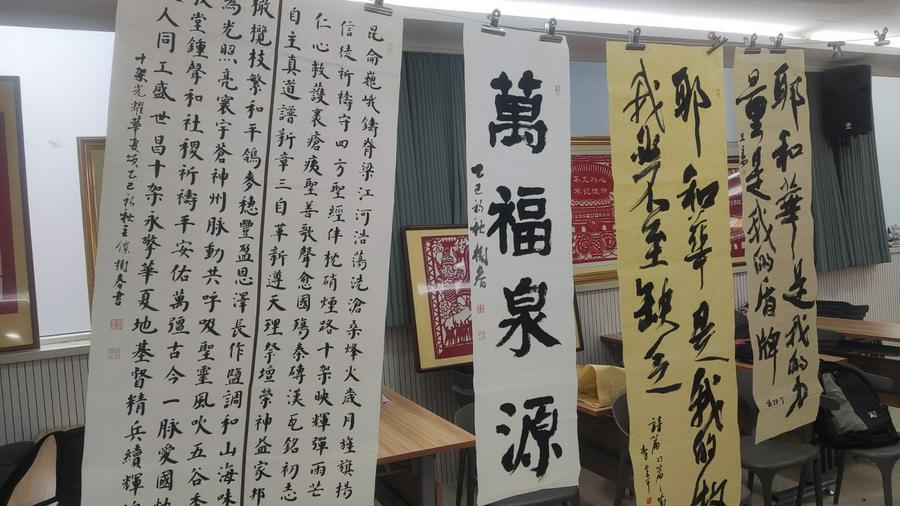 昆侖巍峨鑄脊梁江河浩蕩洗滄桑烽火歲月旌旗揚
信徒祈禱守四方聖經伴枕硝煙路十架映輝彈雨芒
仁心救護裹瘡痍聖善歌聲愈國殤秦磚漢瓦銘初志
自主真道譜新章三自革新遵天理祭壇榮神益家邦
橄欖枝繁和平鴿麥穗豐盈恩澤長作鹽調和山海味
為光照亮寰宇蒼神州脉動共呼吸聖靈風吹五谷香
教堂鐘聲和社稷祈禱平安佑萬疆古今一脉愛國
人同工盛世昌十架永擎華夏地基督精兵續輝
十架光耀華夏頌乙巳初秋主僕樹春書
萬福泉源
乙巳初秋樹春
耶和華是我的牧
我必不至缺乏
詩篇23篇
耶和華是我的力
量是我的盾牌
不忘初心
牢记使命